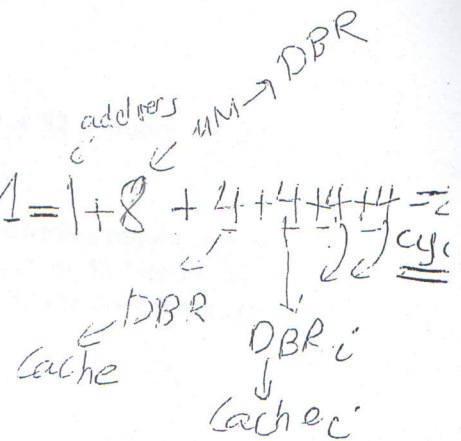 address MM → DBR
1 = 1 + 8 + 4 + 4 + 4 + 4 =
cyc
DBR
Cache
DBR i
Cache i